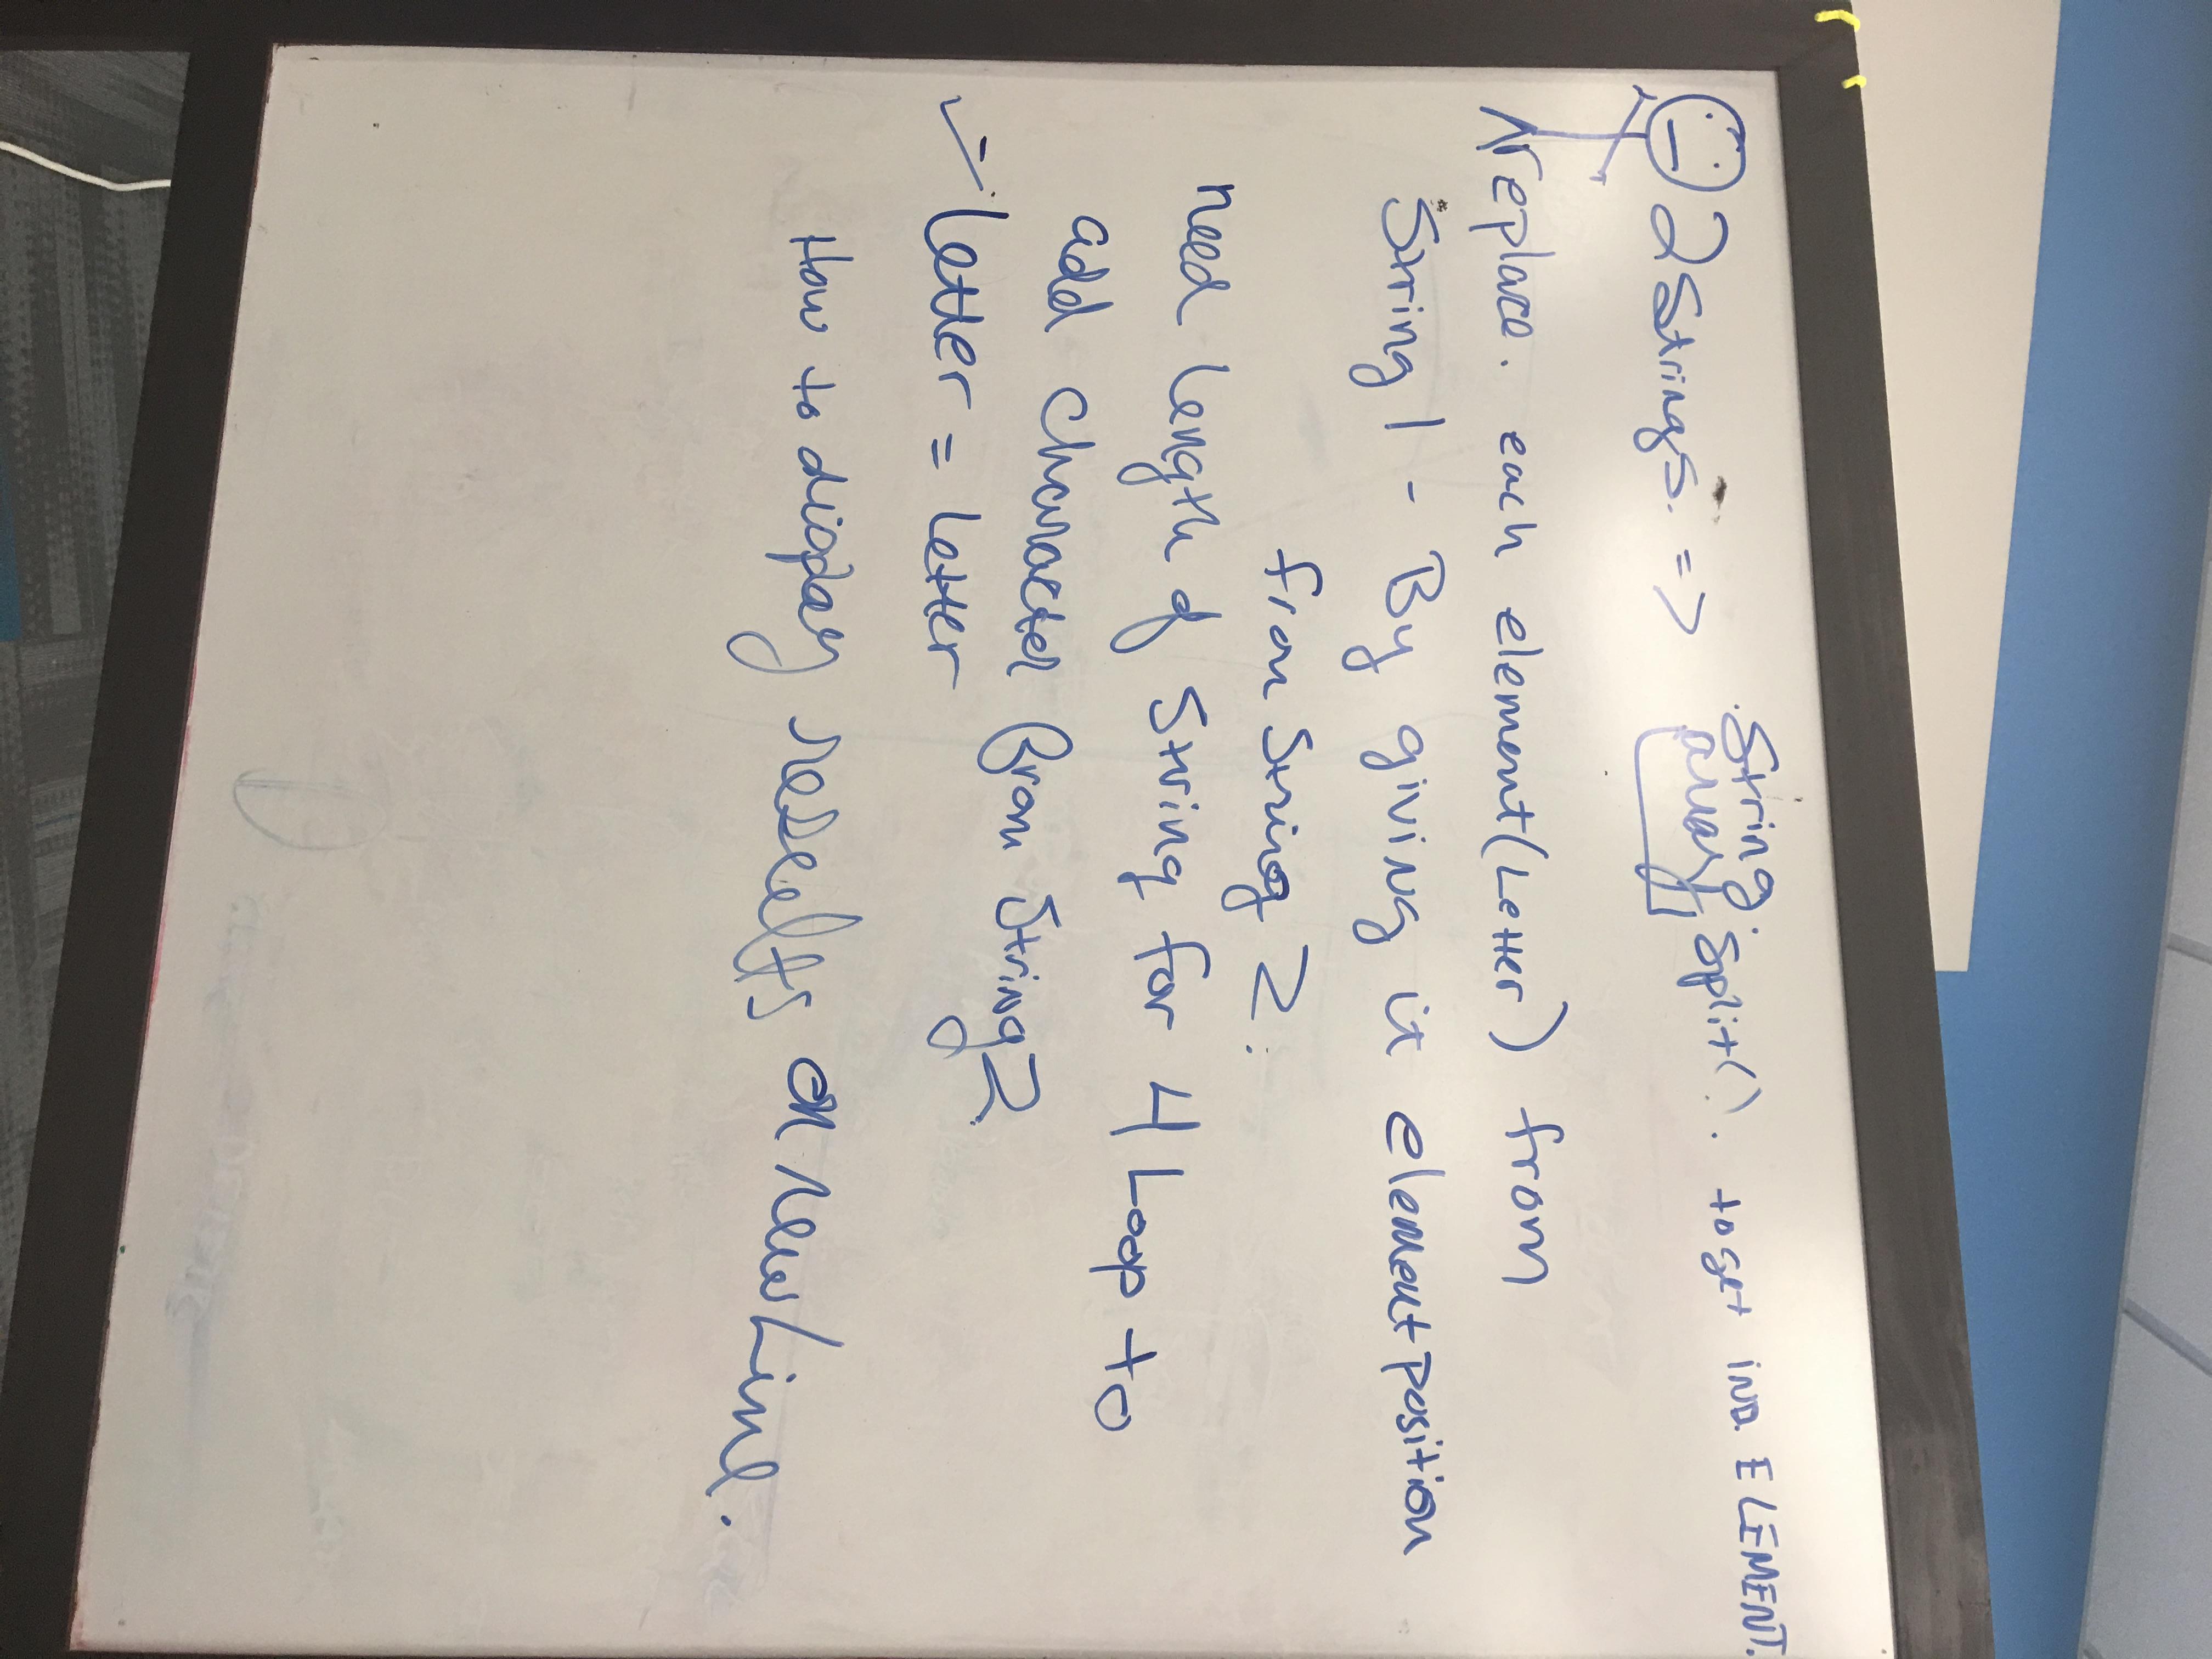 2 Strings. => String.split(). to get IND. ELEMENT.
array
replace. each element(Letter) from
String 1 - By giving it element position
from String 2.
need length of String for 4 Loop to
add character from String 2.
letter = letter
How to display reselts on new Line.